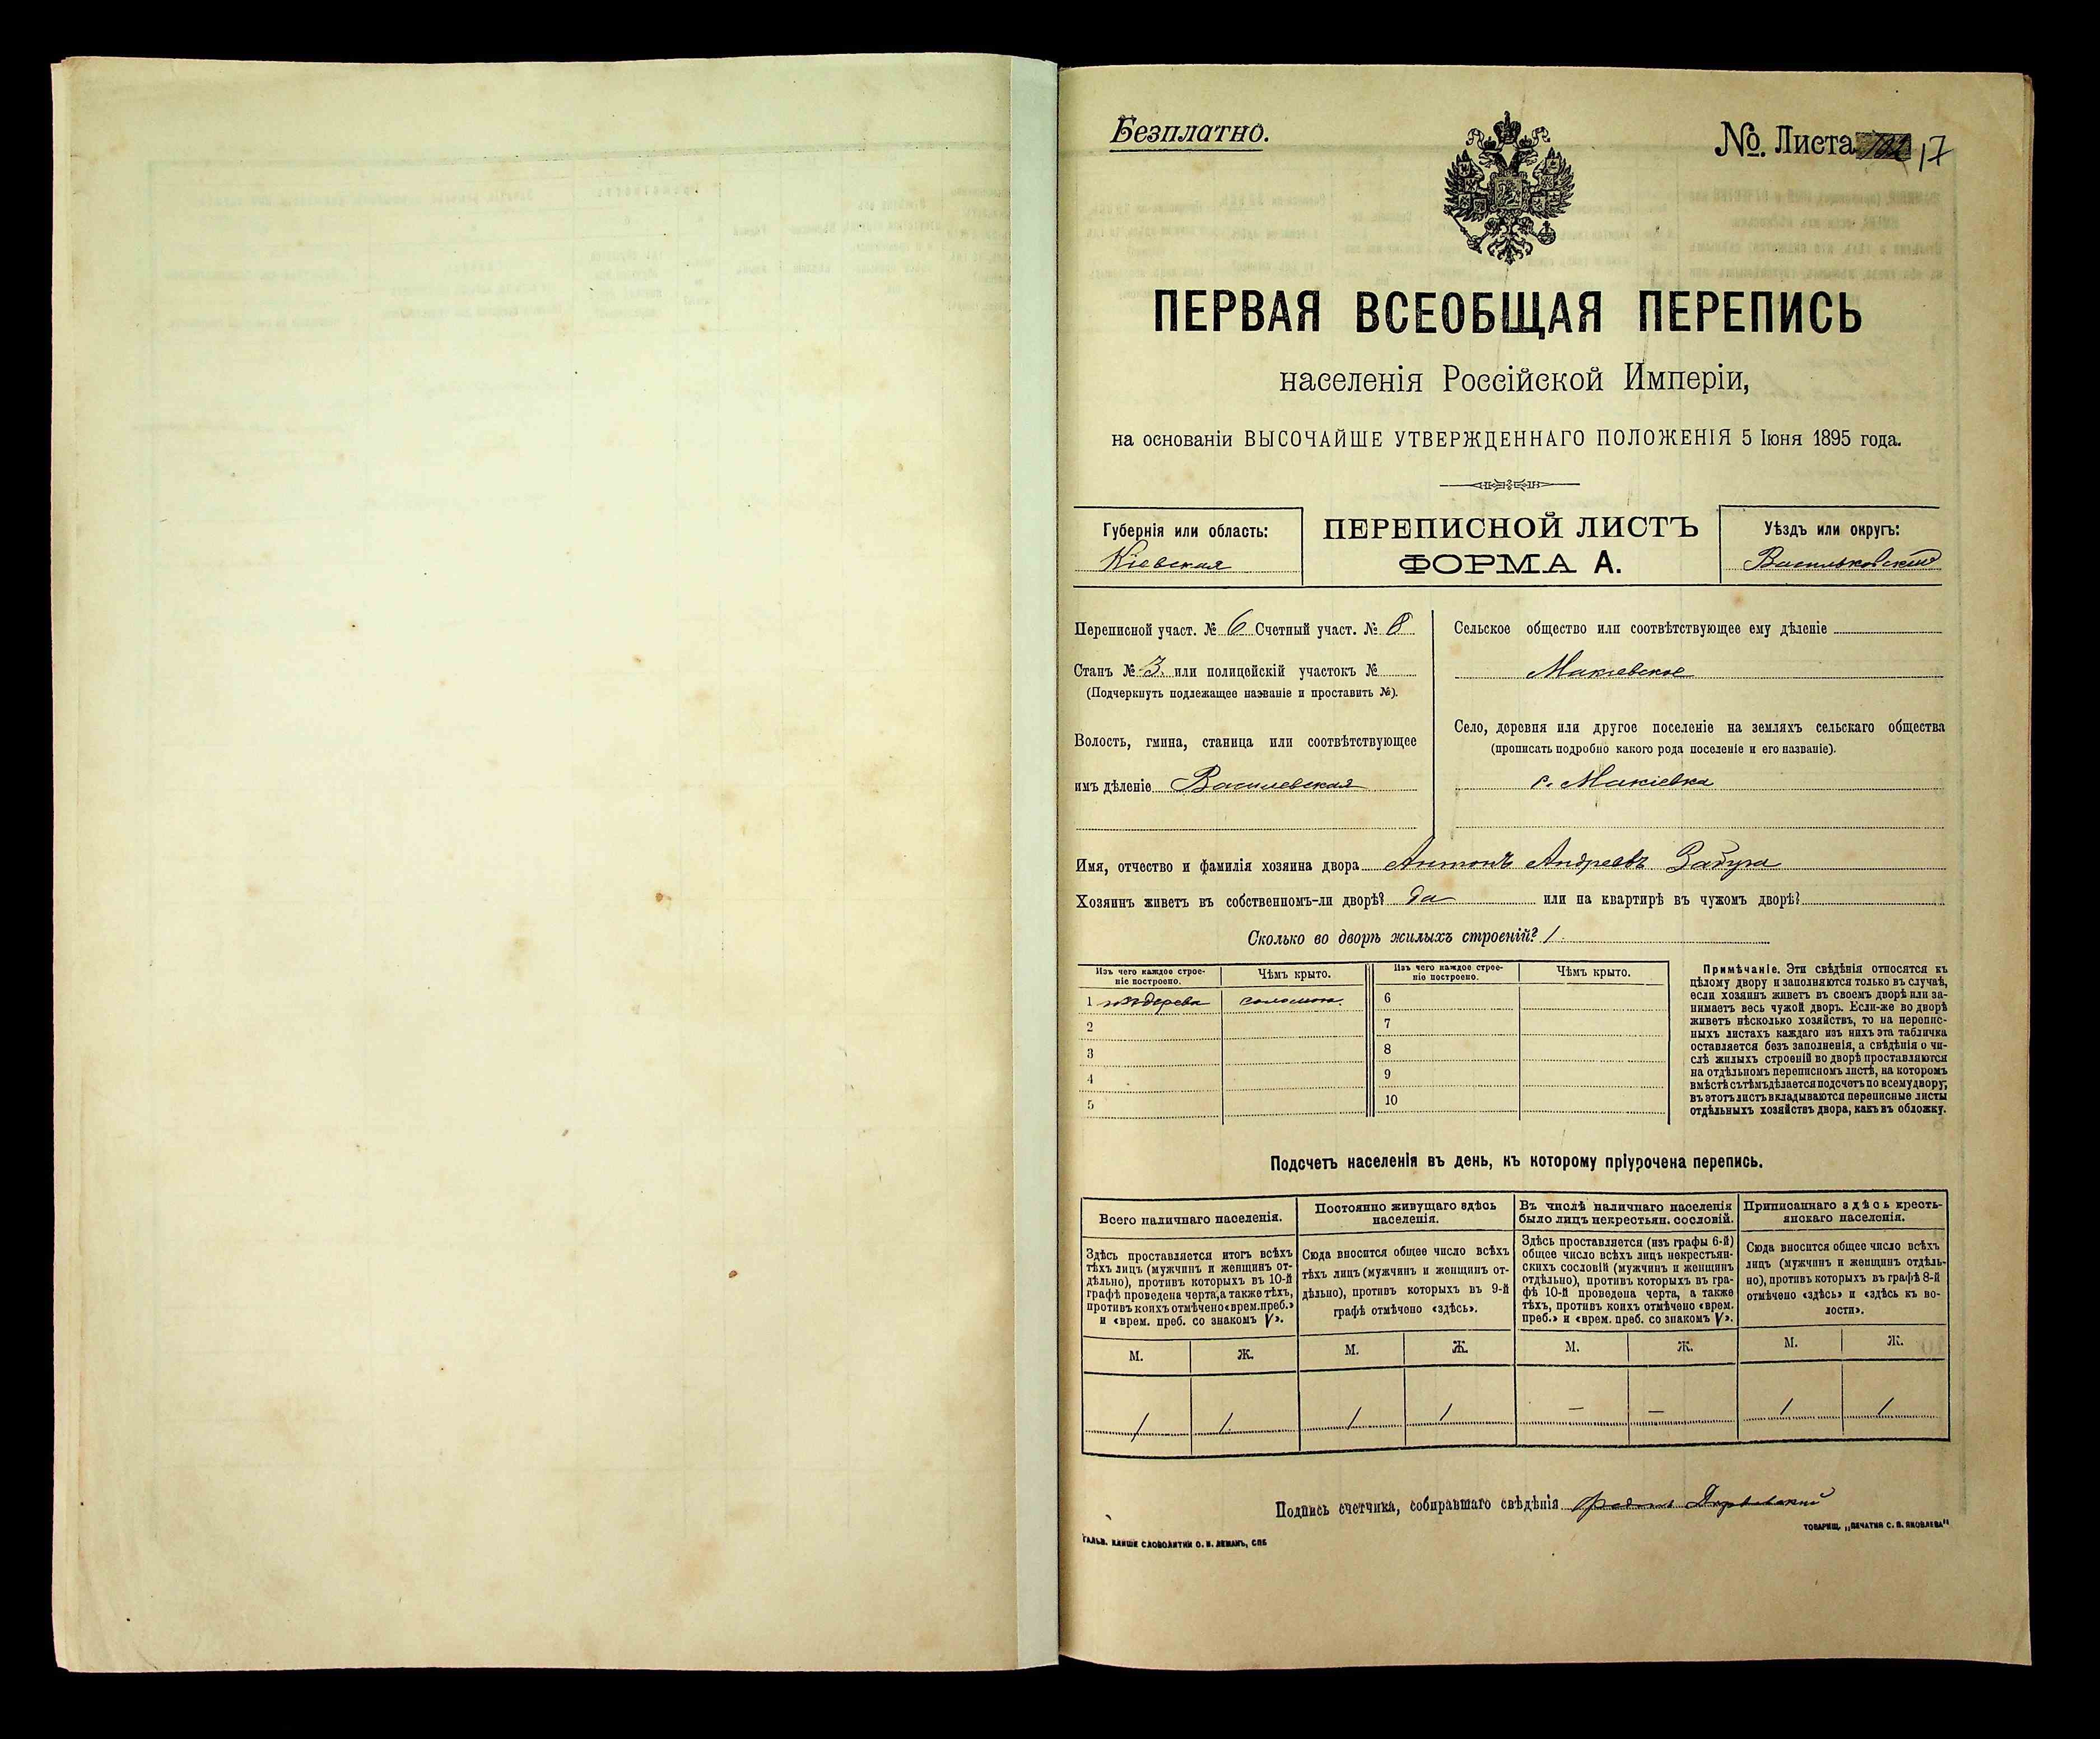 Безплатно.
№. Листа 17
ПЕРВАЯ ВСЕОБЩАЯ ПЕРЕПИСЬ
населенія Россійской Имперіи,
на основаніи ВЫСОЧАЙШЕ УТВЕРЖДЕННАГО ПОЛОЖЕНІЯ 5 Іюня 1895 года.
Губернія или область:
Кіевская
ПЕРЕПИСНОЙ ЛИСТЪ
ФОРМА А.
Уѣздъ или округъ:
Васильковскій
Переписной участ. № 6 Счетный участ. № 8
Станъ № 3. или полицейскій участокъ №
(Подчеркнуть подлежащее названіе и проставить №).
Волость, гмина, станица или соотвѣтствующее
имъ дѣленіе Василевская
Сельское общество или соотвѣтствующее ему дѣленіе
Макіевское
Село, деревня или другое поселеніе на земляхъ сельскаго общества
(прописать подробно какого рода поселеніе и его названіе).
с. Макіевка
Имя, отчество и фамилія хозяина двора Антонъ Андреевъ
Хозяинъ живетъ въ собственномъ-ли дворѣ? да или на квартирѣ въ чужомъ дворѣ?
Сколько во дворѣ жилыхъ строеній? 1.
Изъ чего каждое строе-
ніе построено.
Чѣмъ крыто.
1 изъ дерева соломою.
2
3
4
5
Изъ чего каждое строе-
ніе построено.
Чѣмъ крыто.
6
7
8
9
10
Примѣчаніе. Эти свѣдѣнія относятся къ
цѣлому двору и заполняются только въ случаѣ,
если хозяинъ живетъ въ своемъ дворѣ или за-
нимаетъ весь чужой дворъ. Если-же во дворѣ
живетъ нѣсколько хозяйствъ, то на перепис-
ныхъ листахъ каждаго изъ нихъ эта табличка
оставляется безъ заполненія, а свѣдѣнія о чи-
слѣ жилыхъ строеній во дворѣ проставляются
на отдѣльномъ переписномъ листѣ, на которомъ
вмѣстѣ съ тѣмъ дѣлается подсчетъ по всему двору;
въ этотъ листъ вкладываются переписные листы
отдѣльныхъ хозяйствъ двора, какъ въ обложку.
Подсчетъ населенія въ день, къ которому пріурочена перепись.
Всего наличнаго населенія.
Здѣсь проставляется итогъ всѣхъ
тѣхъ лицъ (мужчинъ и женщинъ от-
дѣльно), противъ которыхъ въ 10-й
графѣ проведена черта, а также тѣхъ,
противъ коихъ отмѣчено «врем. преб.»
и «врем. преб. со знакомъ V».
Постоянно живущаго здѣсь
населенія.
Сюда вносится общее число всѣхъ
тѣхъ лицъ (мужчинъ и женщинъ от-
дѣльно), противъ которыхъ въ 9-й
графѣ отмѣчено «здѣсь».
Въ числѣ наличнаго населенія
было лицъ некрестьян. сословій.
Здѣсь проставляется (изъ графы 6-й)
общее число всѣхъ лицъ некрестьян-
скихъ сословій (мужчинъ и женщинъ
отдѣльно), противъ которыхъ въ гра-
фѣ 10-й проведена черта, а также
тѣхъ, противъ коихъ отмѣчено «врем.
преб.» и «врем. преб. со знакомъ V».
Приписаннаго здѣсь кресть-
янскаго населенія.
Сюда вносится общее число всѣхъ
лицъ (мужчинъ и женщинъ отдѣль-
но), противъ которыхъ въ графѣ 8-й
отмѣчено «здѣсь» и «здѣсь къ во-
лости».
М. Ж. М. Ж. М. Ж. М. Ж.
1 1 1 1 — — 1 1
Подпись счетчика, собиравшаго свѣдѣнія
ГАЛЬВ. КЛИШЕ СЛОВОЛИТНИ О. И. ЛЕМАНЪ, СПБ
ТОВАРИЩ. „ПЕЧАТНЯ С. П. ЯКОВЛЕВА"